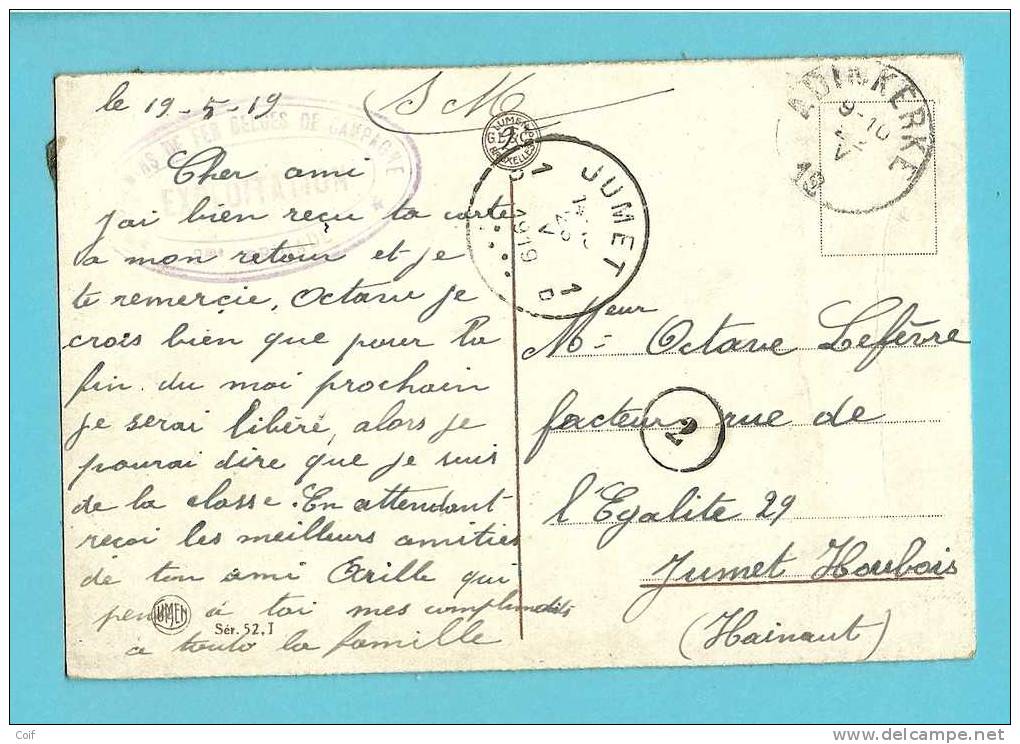 le 19-5-19
S M
RS DE FER BELGES DE CAMPAGNE
EXPLOITATION
Cher ami
j'ai bien reçu ta carte
a mon retour et je
te remercie, Octave je
crois bien que pour la
fin du moi prochain
je serai libéré, alors je
pourai dire que je suis
de la classe. En attendant
reçoi les meilleurs amities
de ton ami qui
a toi mes compliments
a toute la famille
LUMEN
Sér. 52, I
LUMEN
BRUXELLES
JUMET
1 1
1919
ADINKERKE
9-10
V
19
Meur Octave Lefèvre
facteur rue de
2
l'Egalite 29
Jumet Houbois
(Hainaut)
Coif
www.delcampe.net